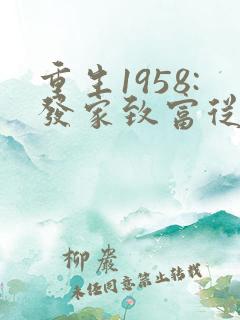 重生1958:
發家致富從
柳岩
未经同意禁止转载